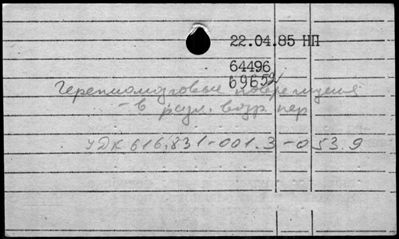 22.04.85 НП
64496
69652
Черепномозговые повреждения
- в разл. возр. пер.
УДК 616.831-001.3-053.9